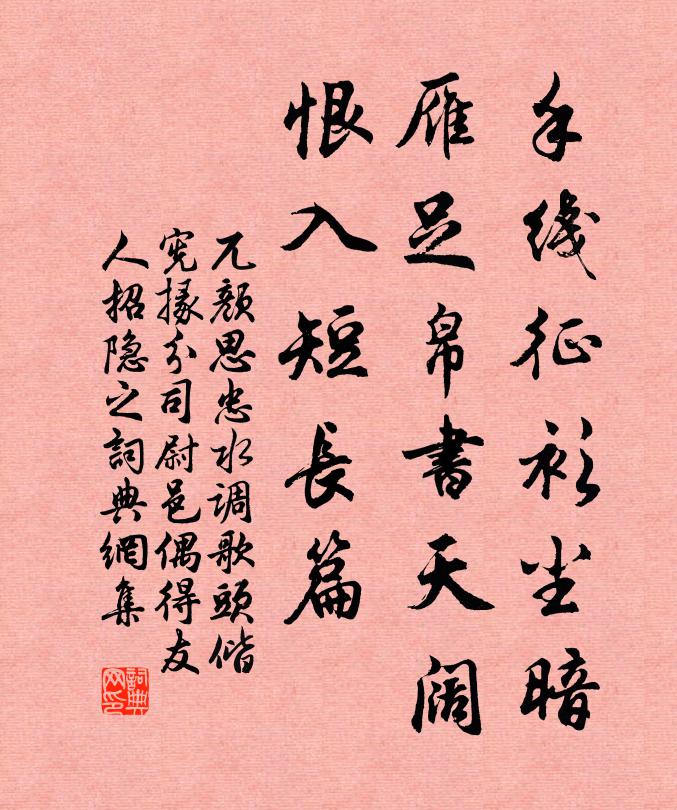 手线征衫尘暗
雁足帛书天阔
恨入短長篇
兀颜思忠水调歌頭偕
宪掾分司尉邑偶得友
人招隐之詞典網集
詞典
网印